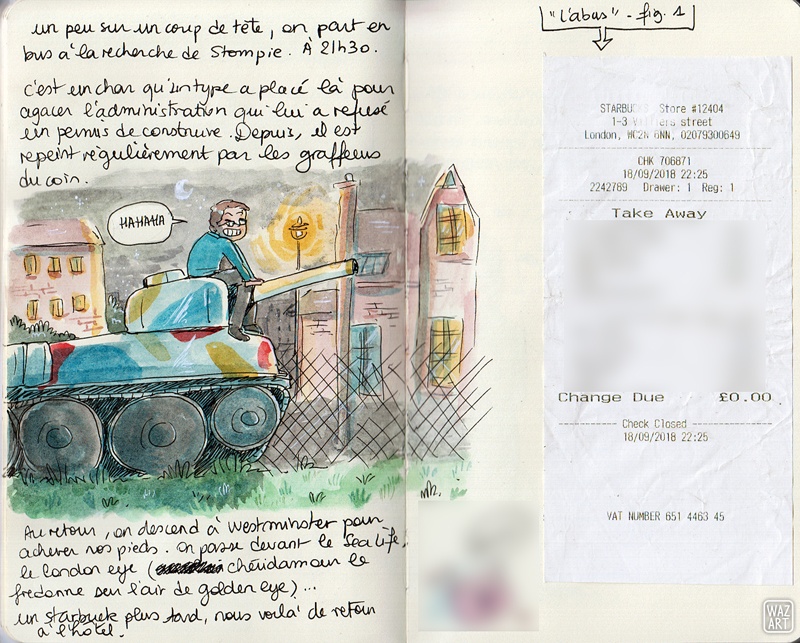 un peu sur un coup de tête, on part en
bus à la recherche de Stompie. À 21h30.
c'est un char qu'un type a placé là pour
agacer l'administration qui lui a refusé
un permis de construire. Depuis, il est
repeint régulièrement par les graffeurs
du coin.
HAHAHA
Au retour, on descend à Westminster pour
achever nos pieds. on passe devant le Sea Life,
le london eye (chéridamour le
fredonne sur l'air de golden eye)...
un starbuck plus tard, nous voilà de retour
à l'hôtel.
"l'abus" - fig. 1
STARBUCKS Store #12404
1-3 Villiers street
London, WC2N 6NN, 02079300649
CHK 706871
18/09/2018 22:25
2242789 Drawer: 1 Reg: 1
Take Away
Change Due £0.00
Check Closed
18/09/2018 22:25
VAT NUMBER 651 4463 45
WAZ
ART